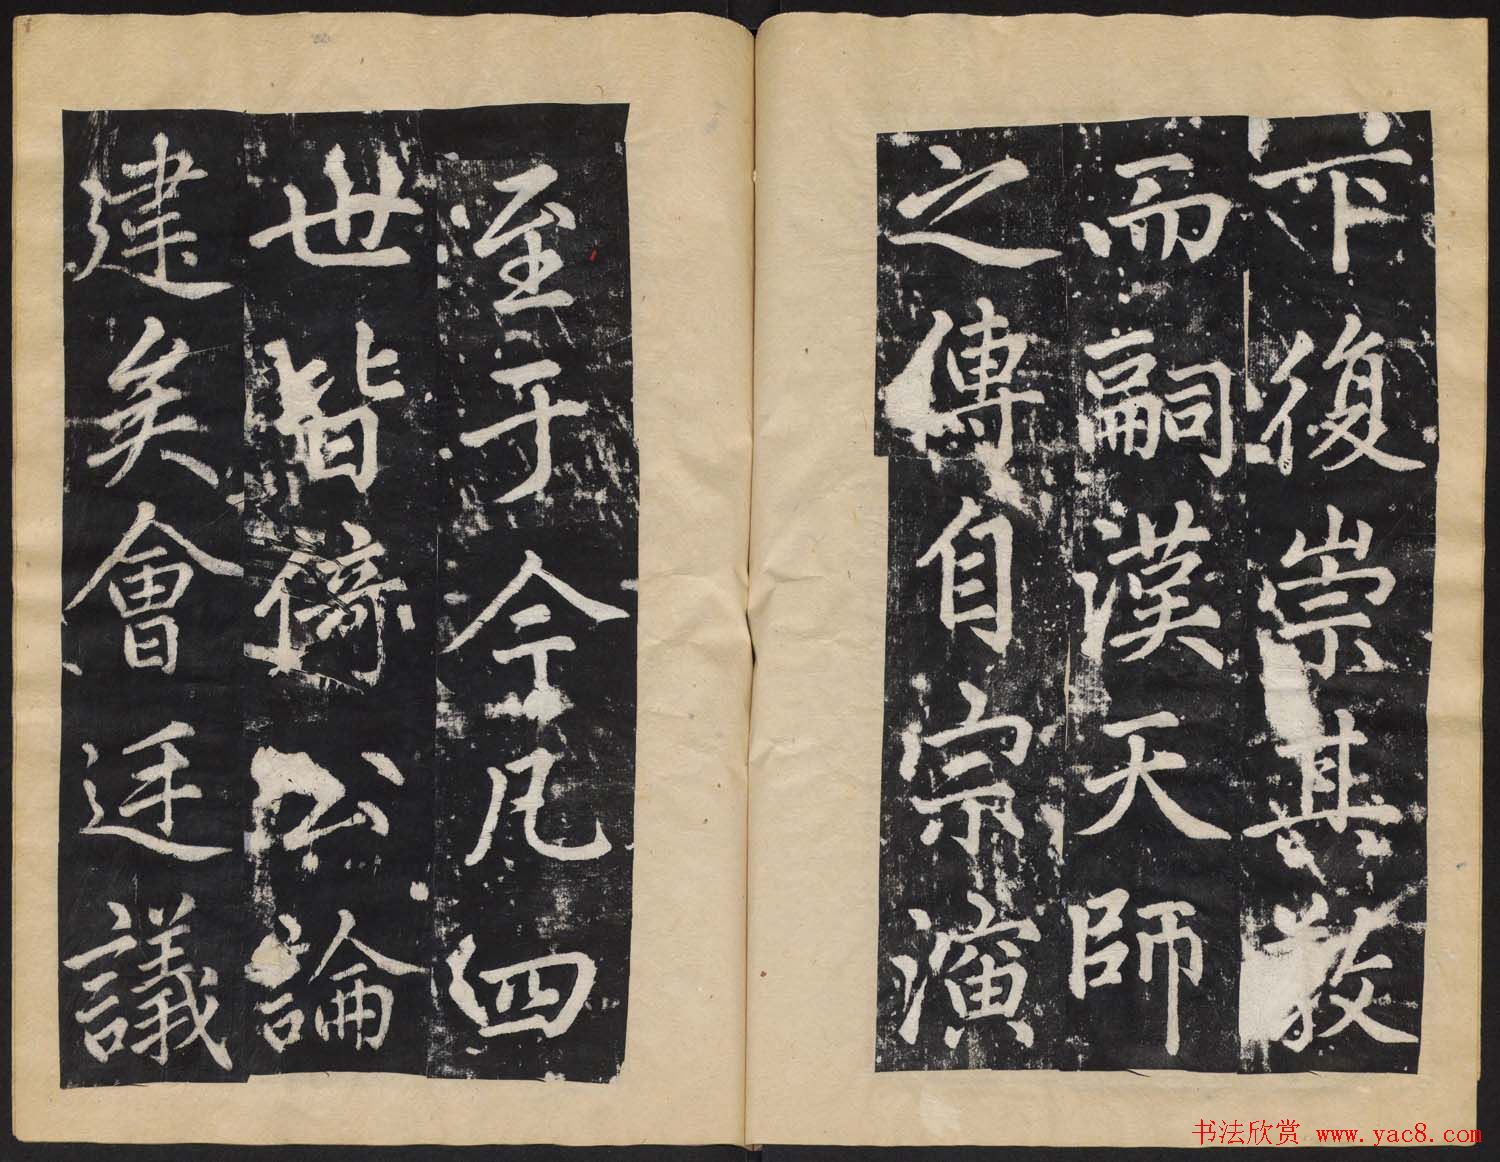 下復崇其教
而嗣漢天師
之傳自宗演
至于今凡四
世皆倚公論
建矣會廷議
书法欣赏 www.yac8.com